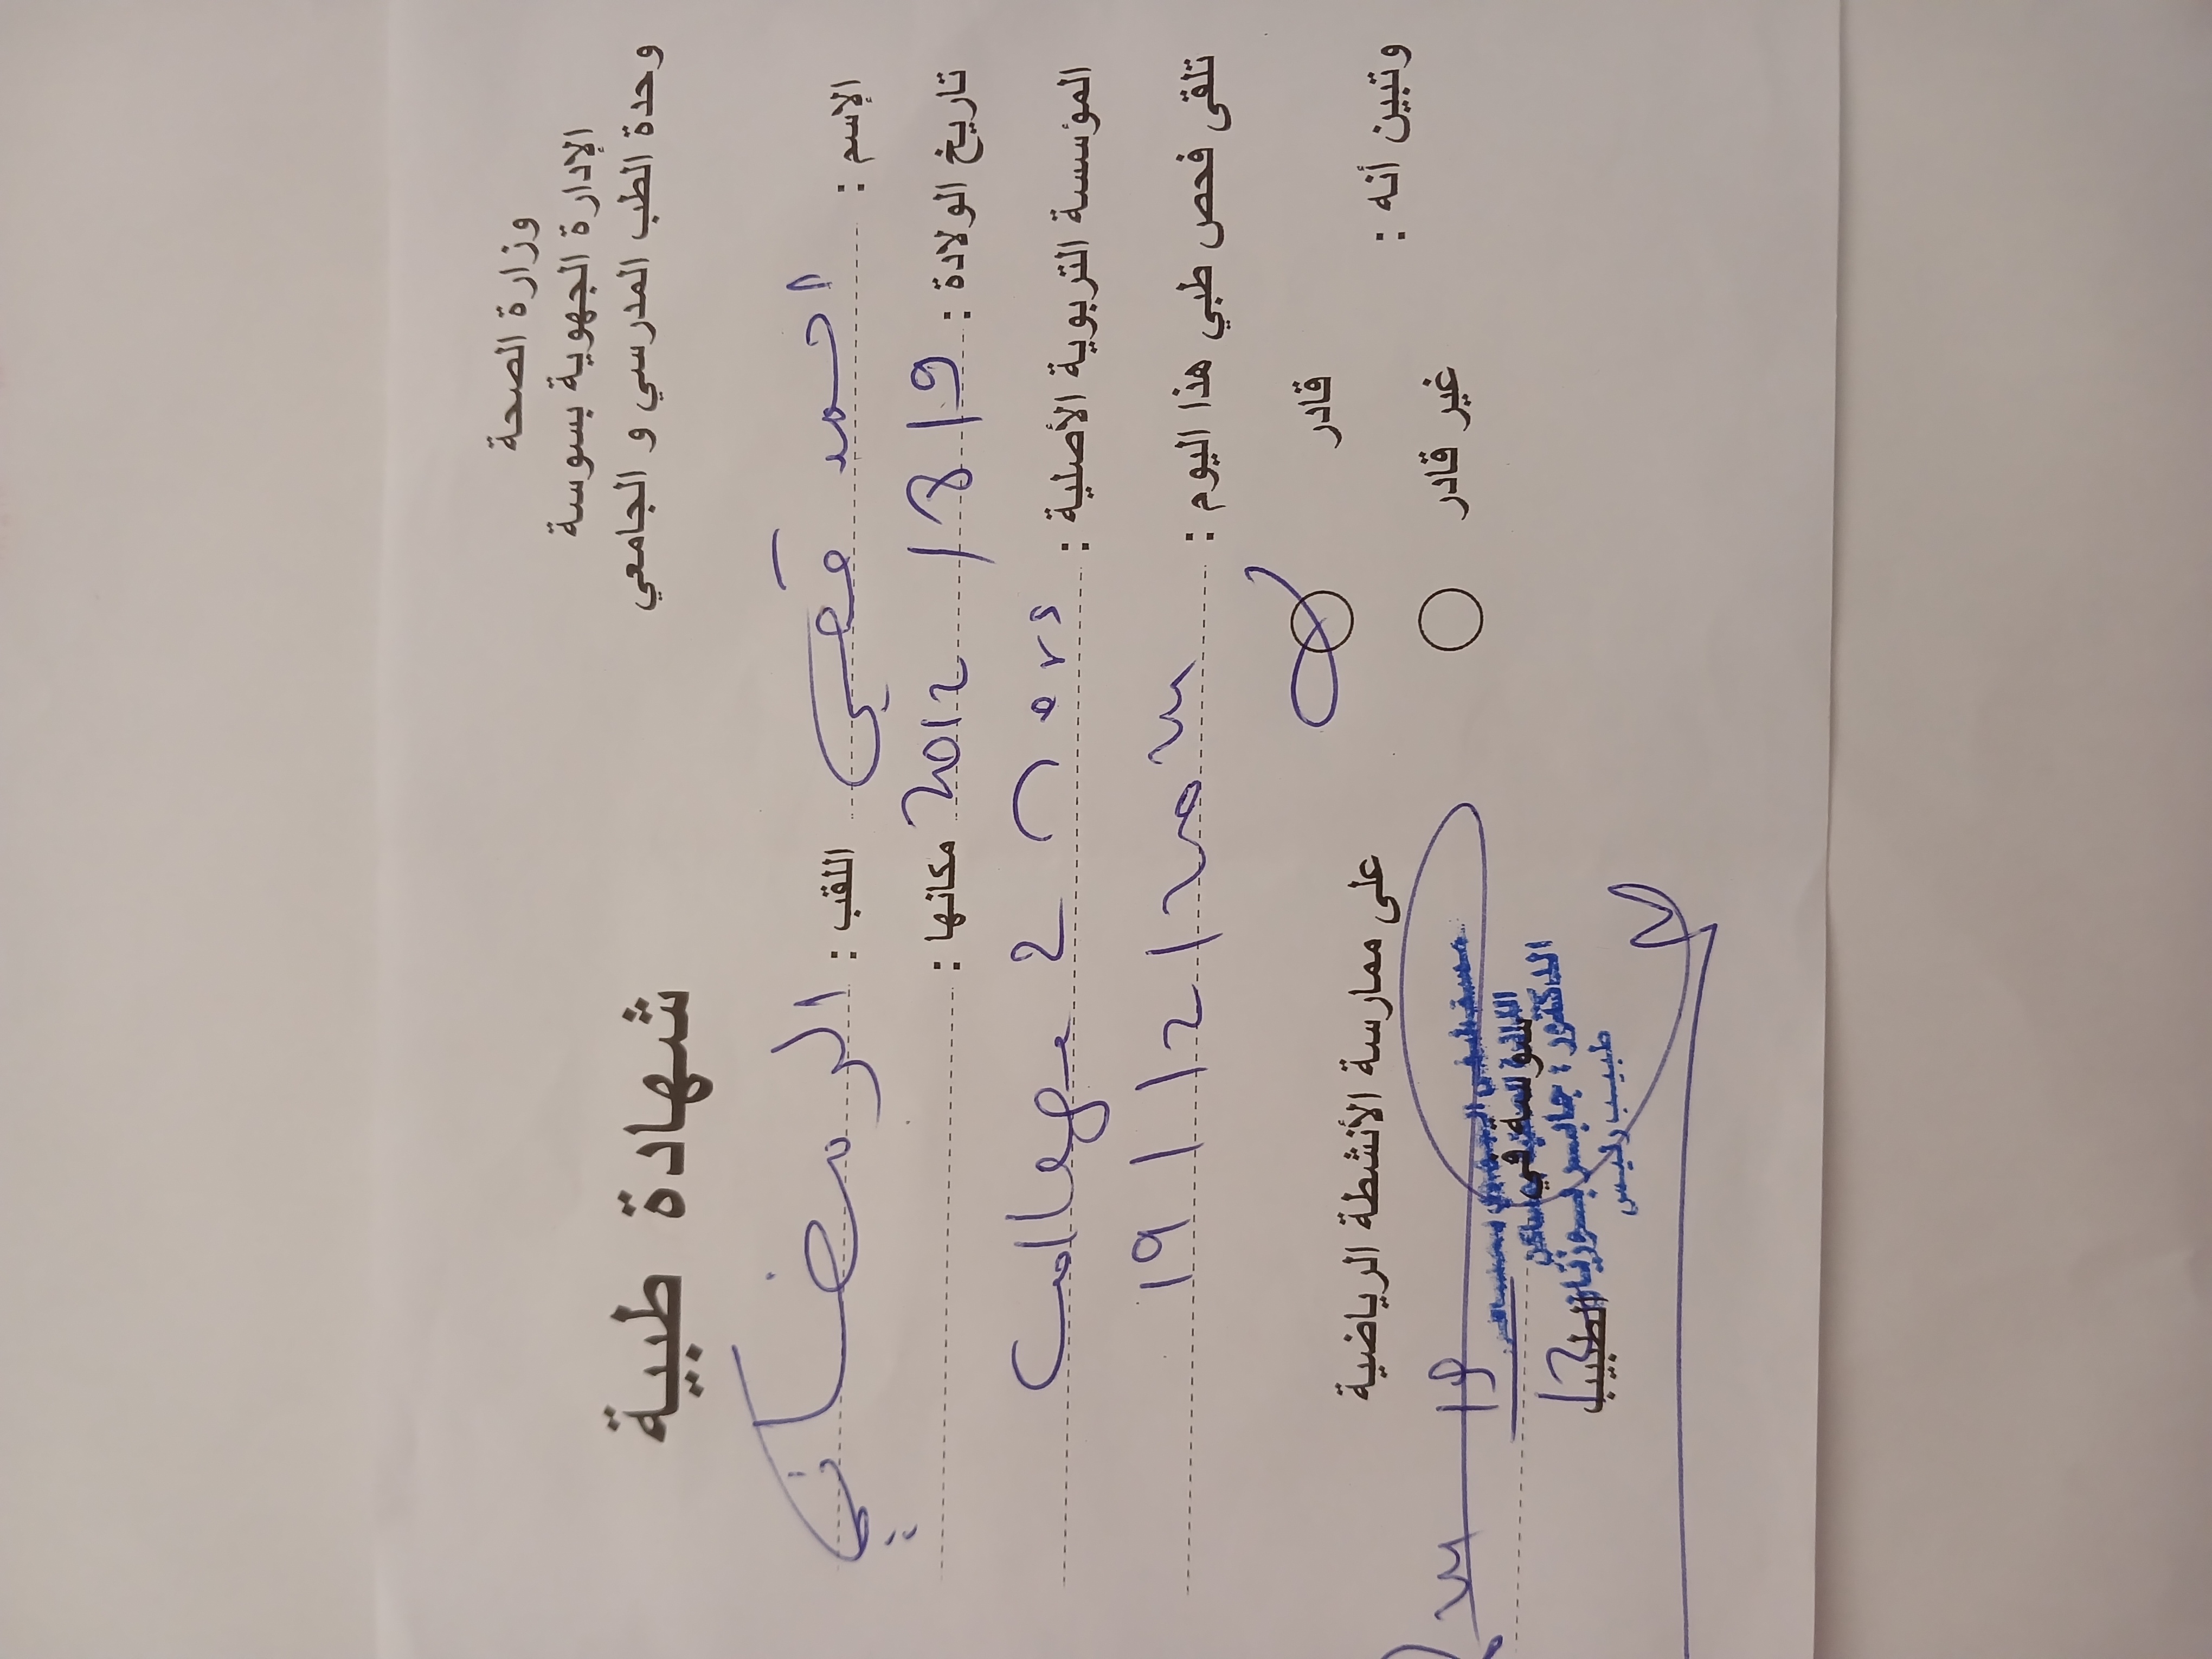 وزارة الصحة
الإدارة الجهوية بسوسة
وحدة الطب المدرسي و الجامعي
شهادة طبية
الإسم : احمد اللقب : الرمضاني
تاريخ الولادة : 9/8/2012 مكانها :
المؤسسة التربوية الأصلية : College 2 mars
تلقى فحص طبي هذا اليوم : 19/12/2025
وتبين أنه :
قادر
غير قادر
على ممارسة الأنشطة الرياضية
سوسة في
الطبيب
الدكتور :
طبيب رئيس